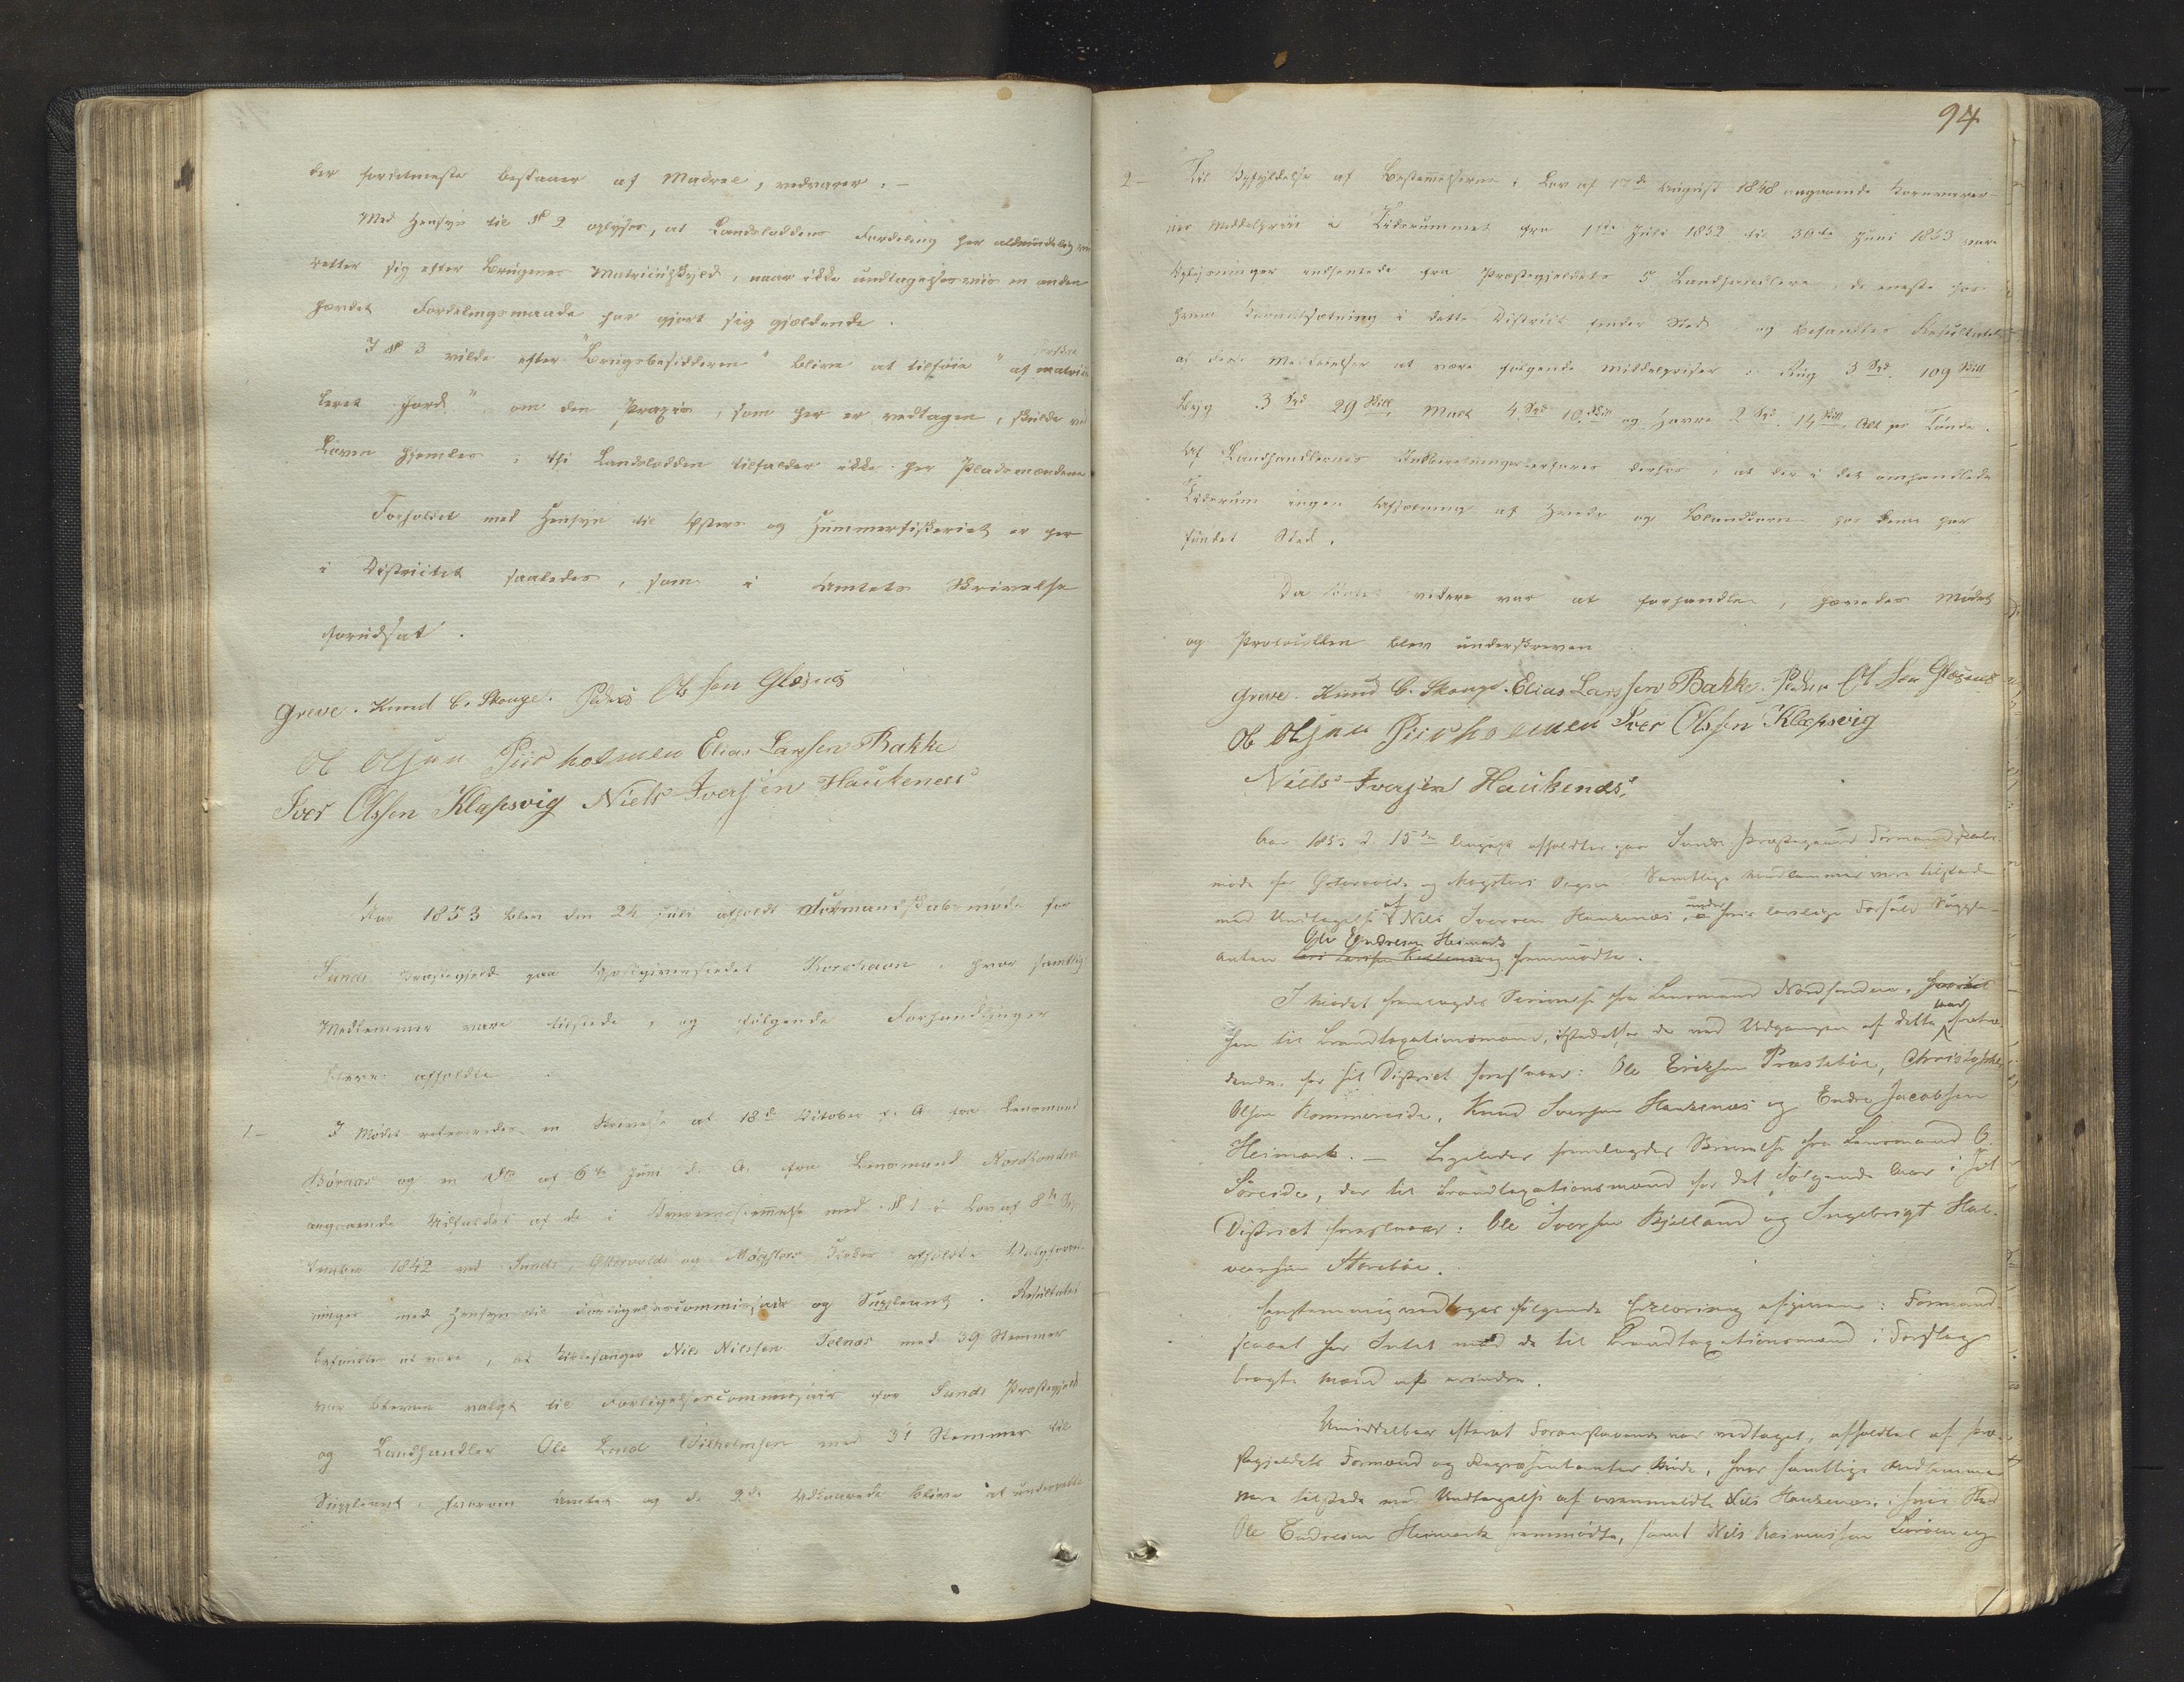 der forietmeste bestaaer af Makrel, vedvarer. —
Med Hensyn til § 2 oplyses, at Landsloddens Fordeling her almindelig
retter sig efter Brugenes Matriculskyld, naar ikke undtagelsesviis en anden
hævdet Fordelingsmaade har gjort sig gjældende.
I § 3 vilde efter "Brugsbesidderen" blive at tilføie "af matricu
leret Jord", om den Praxis, som her er vedtagen, skulde ved
Loven hjemles; thi Landslodden tilfalder ikke her Pladsmændene
Forholdet med Hensyn til Østers og Hummerfiskeriet er her
i Districtet saaledes, som i Amtets Skrivelse
forudsat.
Greve. Knud C. Skouge. Peder Ols sen Glæsnes
Ol Olsen Piirholmen Elias Larssen Bakke
Iver Olssen Klepsvig Niels Iversen Haukeness
Aar 1853 blev den 24 Juli afholdt Formandskabsmøde for
Sunds Præstegjeld paa Gjestgiverstedet Korshavn, hvor samtlige
Medlemmer vare tilstede, og følgende Forhandlinger
bleve afholdte
1— I Mødet refereredes en Skrivelse af 18de October f. A. fra Lensmand
Børnæs og en do af 6te Juni d. A. fra Lensmand Nordsonden
angaaende Udfaldet af de i Overensstemmelse med § 1 i Lov af 8de Sep
tember 1842 ved Sunds, Østervolds og Møgsters Kirker afholdte Valgforret
ninger med Hensyn til Forligelsescommissair og Suppleant. Resultatet
befandtes at være, at Kirkesanger Nils Nilssen Selnæs med 39 Stemmer
var bleven valgt til Forligelsescommissair for Sunds Præstegjeld
og Landhandler Ole Lind Wilhelmsen med 31 Stemmer til
Suppleant, hvorom Amtet og de 2de Udkaarede bliver at underrette
94
2— Til Opfyldelse af Bestemmelserne i Lov af 17de August 1848 angaaende Kornvarer
nes Middelpriis i Tidsrummet fra 1ste Juli 1852 til 30te Juni 1853 vare
Oplysninger indhentede fra Præstegjeldets 5 Landhandlere, de eneste hos
hvem Kornudsætning i dette District finder Sted og befandtes Resultatet
af deres Meddelelser at være følgende Middelpriser: Rug 3 Spd. 109 Skill
Byg 3 Spd 29 Skill, Malt 4 Spd 10 Skill og Havre 2 Spd. 14 Skill. Alt pr Tønde.
Af Landhandlernes Indberetninger erfares derhos, at der i det omhandlede
Tidsrum ingen Afsætning af Hvede og Blandkorn hos dem har
fundet Sted.
Da Intet videre var at forhandle, hævedes Mødet
og Protocollen blev underskreven
Greve. Knud C. Skouge. Elias Larssen Bakke. Peder Ol sen Glæsnes
Ol Olsen Piirholmen Iver Olssen Klepsvig
Niels Iversen Haukenæs,
Aar 1853 d. 15de August afholdtes paa Sunds Præstegaard Formandskabs
møde for Østervolds og Møgsters Sogne. Samtlige Medlemmer vare tilstede
med Undtagelse af Nils Iversen Haukenæs, under hvis lovlige Forfald Supple-
anten Ole Endresen Heimark fremmødte.
I Mødet fremlagdes Skrivelse fra Lensmand Nordsonden, hvori
han til Brandtaxationsmænd, istedetfor de ved Udgangen af dette Aar fratræ
dende, for sit District foreslaaer: Ole Eriksen Præstebøe, Christopher
Olsen Rommereide, Knud Iversen Haukenæs og Endre Jacobsen
Heimark. — Ligeledes fremlagdes Skrivelse fra Lensmand O.
Søreide, der til Brandtaxationsmænd for det følgende Aar i sit
District foreslaaer: Ole Iversen Bjelland og Ingebrigt Hal-
vorsen Storebøe.
Eenstemmig vedtoges følgende Erklæring afgiven: Formand
skabet har Intet mod de til Brandtaxationsmænd i Forslag
bragte Mænd at erindre.
Umiddelbar efterat Foranstaaende var vedtaget, afholdtes af Præ-
stegjeldets Formænd og Repræsentanter Møde, hvor samtlige Medlemmer
vare tilstede med Undtagelse af ovenmeldte Nils Haukenæs, i hvis Sted
Ole Endresen Heimark fremmødte, samt Nils Rasmussen og